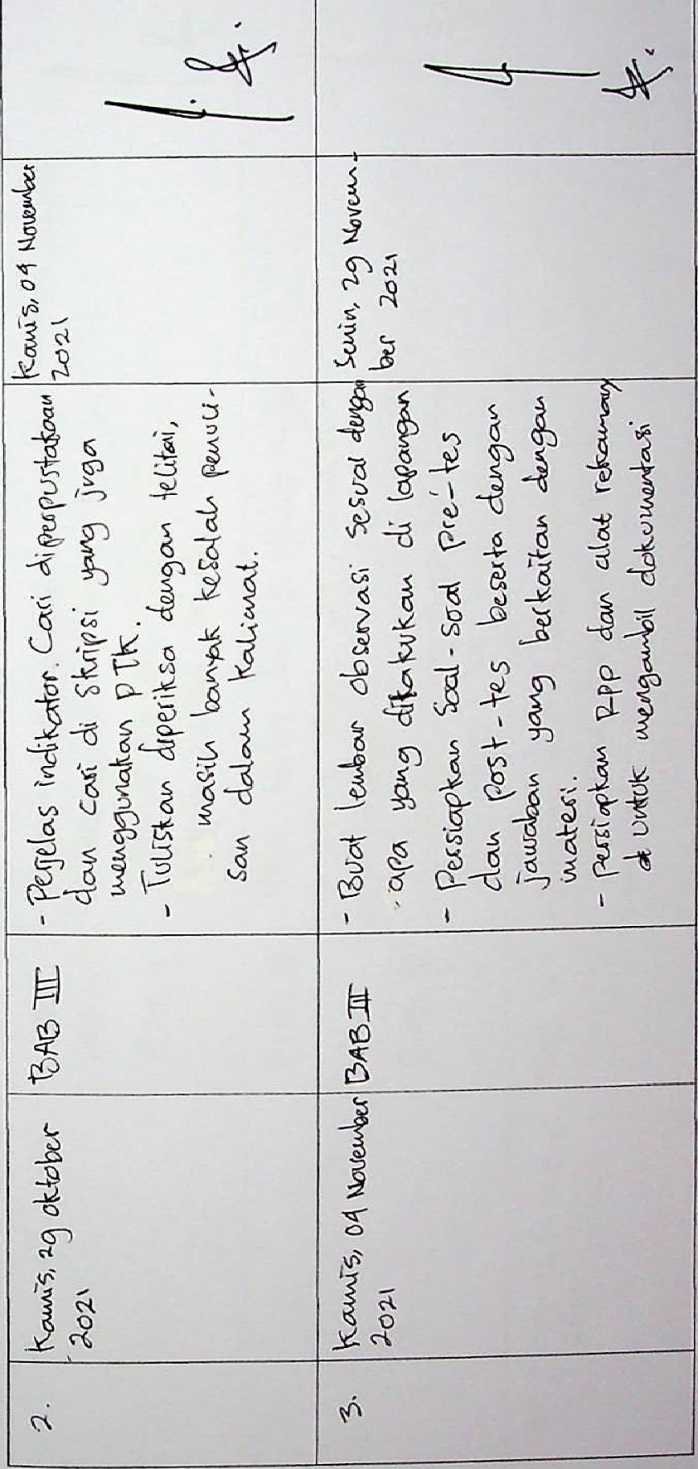 2.
Kamis, 29 oktober
2021
BAB III
- Perjelas indikator. Cari diperpustakaan
dan cari di skripsi yang juga
menggunakan PTK.
- Tuliskan diperiksa dengan telitai,
masih banyak kesalah penuli-
san dalam kalimat.
Kamis, 04 November
2021
3.
Kamis, 04 November
2021
BAB III
- Buat lembar observasi sesuai dengan
apa yang dilakukan di lapangan
- Persiapkan Soal-soal pre-tes
dan post-tes beserta dengan
jawaban yang berkaitan dengan
materi.
- persiapkan RPP dan alat rekaman
untuk mengambil dokumentasi
Senin, 29 Novem-
ber 2021